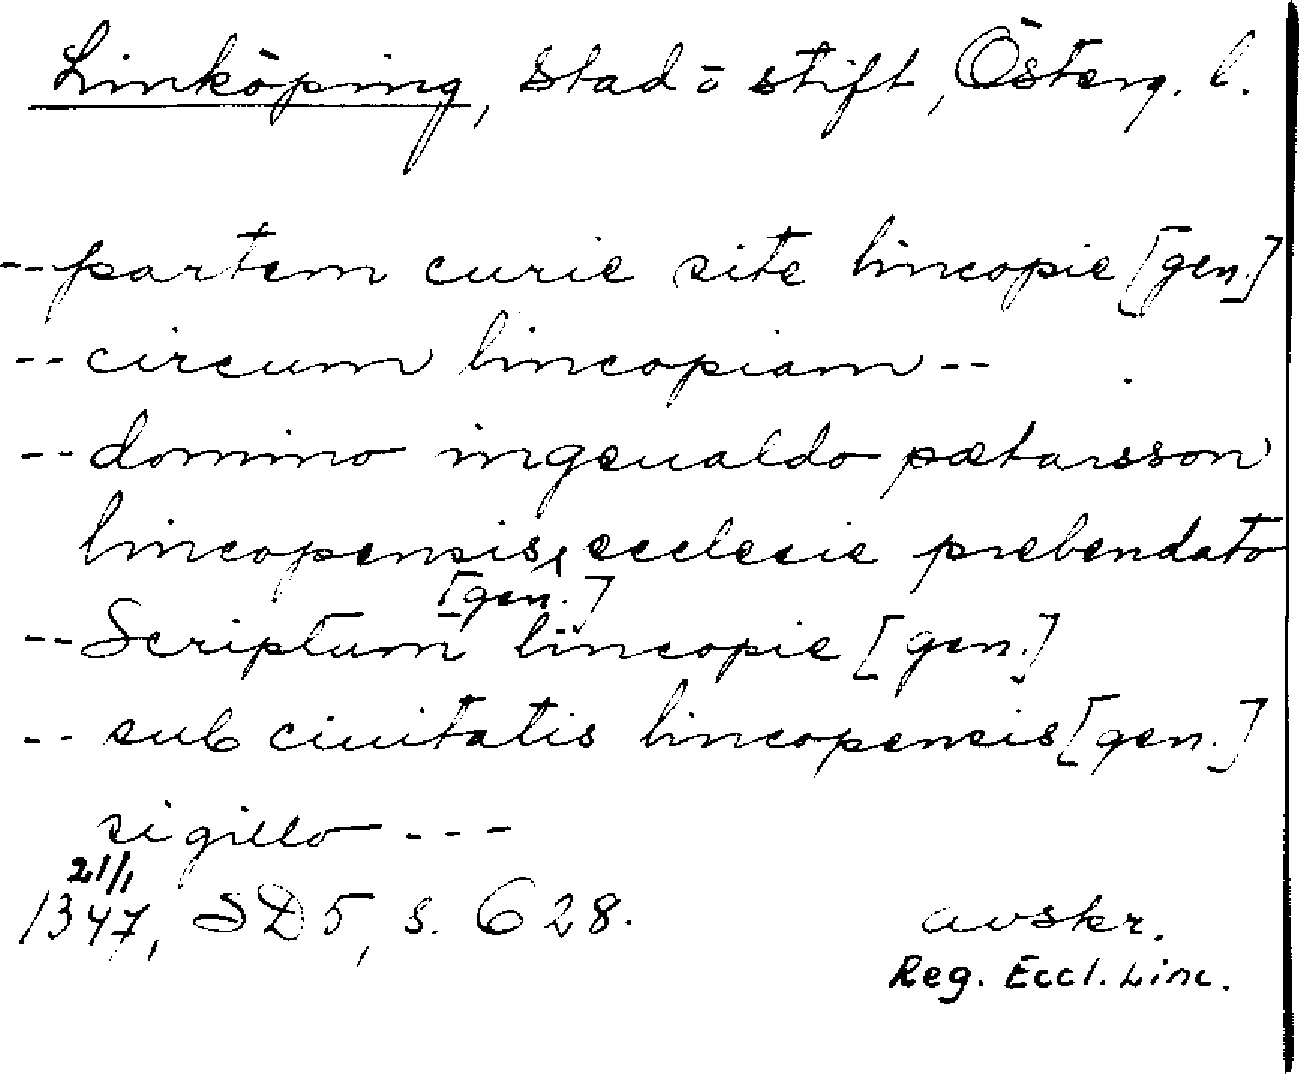 Linköping, stad o stift, Österg. l.
-- partem curie site lincopie [gen.]
-- circum lincopiam --
-- domino ingeualdo pætarsson
lincopensis ecclesie prebendato
[gen.]
-- Scriptum lincopie [gen.]
-- sub ciuitatis lincopensis [gen.]
sigillo ---
21/1
1347, SD 5, s. 628.
avskr.
Reg. Eccl. Linc.